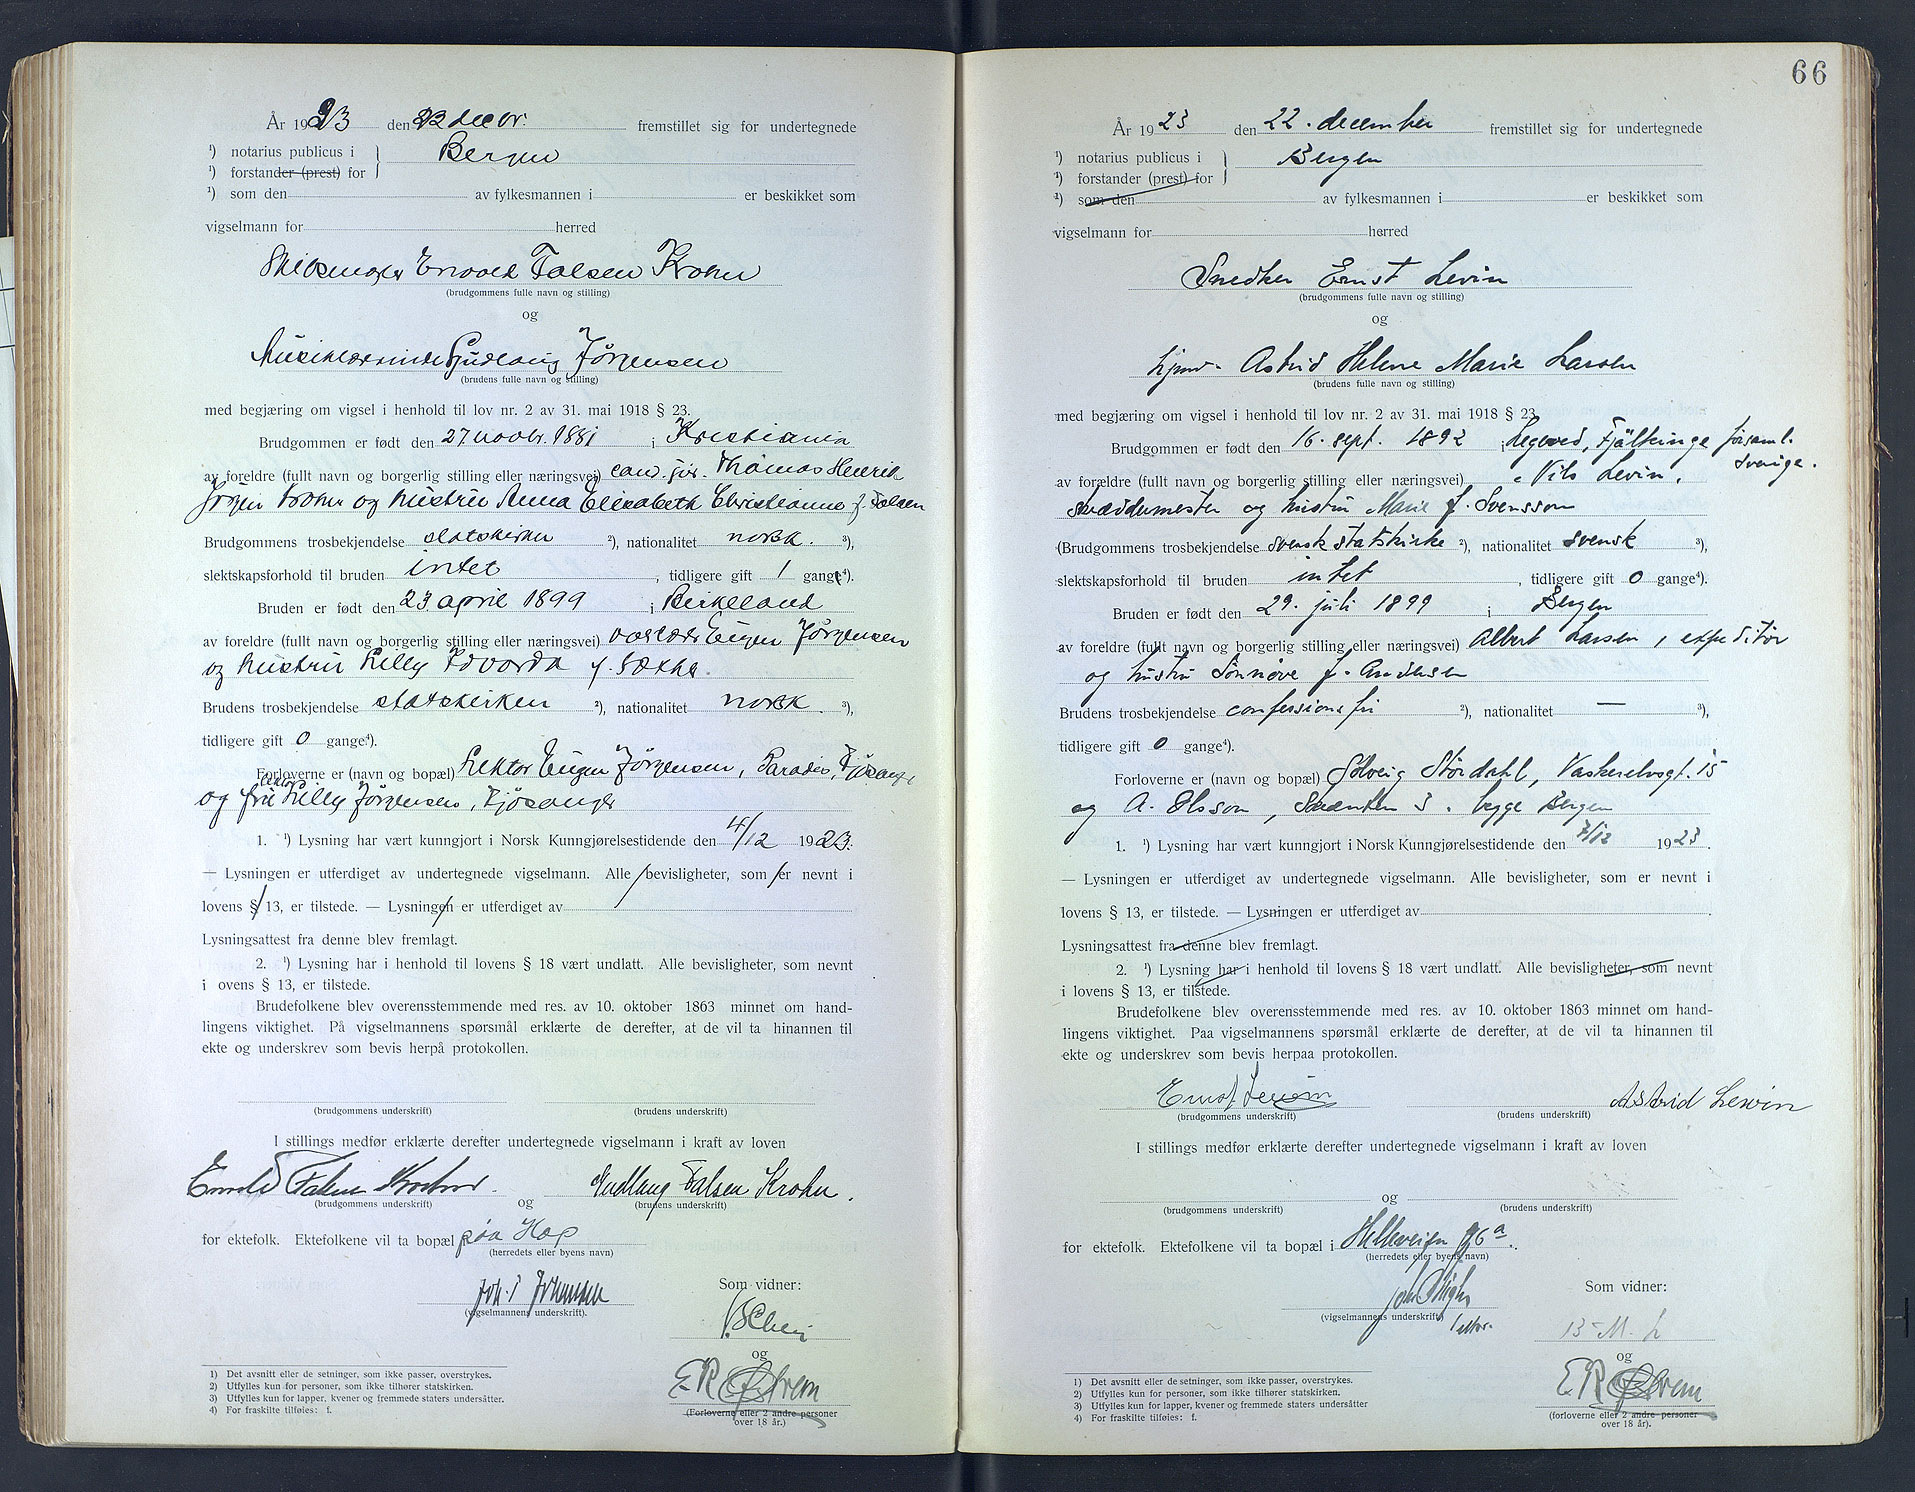 År 1923 den 22 decbr. fremstillet sig for undertegnede
¹) notarius publicus i } Bergen
¹) forstander (prest) for
¹) som den av fylkesmannen i er beskikket som
vigselmann for herred
Falsen Krohn
(brudgommens fulle navn og stilling)
og
Musiklærerinde Gudlaug Jørgensen
(brudens fulle navn og stilling)
med begjæring om vigsel i henhold til lov nr. 2 av 31. mai 1918 § 23.
Brudgommen er født den 27. novbr. 1881 i Kristiania
av foreldre (fullt navn og borgerlig stilling eller næringsvei) cand. jur. Thomas Henrik
Jørgen Krohn og hustru Anna Elisabeth Christianne f. Falsen
Brudgommens trosbekjendelse statskirken ²), nationalitet norsk. ³),
slektskapsforhold til bruden intet , tidligere gift 1 gang⁴).
Bruden er født den 23. april 1899 i Birkeland
av foreldre (fullt navn og borgerlig stilling eller næringsvei) Eugen Jørgensen
og hustru Lilly Edvarda f. Sæthe.
Brudens trosbekjendelse statskirken ²), nationalitet norsk. ³),
tidligere gift 0 gange⁴).
Forloverne er (navn og bopæl) Lektor Eugen Jørgensen, Paradis, Fjøsanger
og fru lektor Lilly Jørgensen, Fjøsanger
1. ¹) Lysning har vært kunngjort i Norsk Kunngjørelsestidende den 4/12 1923.
— Lysningen er utferdiget av undertegnede vigselmann. Alle bevisligheter, som er nevnt i
lovens § 13, er tilstede. — Lysningen er utferdiget av
Lysningsattest fra denne blev fremlagt.
2. ¹) Lysning har i henhold til lovens § 18 vært undlatt. Alle bevisligheter, som nevnt
i ovens § 13, er tilstede.
Brudefolkene blev overensstemmende med res. av 10. oktober 1863 minnet om hand-
lingens viktighet. På vigselmannens spørsmål erklærte de derefter, at de vil ta hinannen til
ekte og underskrev som bevis herpå protokollen.
(brudgommens underskrift) (brudens underskrift)
I stillings medfør erklærte derefter undertegnede vigselmann i kraft av loven
Falsen Krohn og Gudlaug Falsen Krohn.
(brudgommens underskrift) (brudens underskrift)
for ektefolk. Ektefolkene vil ta bopæl paa Hop
(herredets eller byens navn)
Som vidner:
(vigselmannens underskrift).
og
(Forloverne eller 2 andre personer
over 18 år.)
1) Det avsnitt eller de setninger, som ikke passer, overstrykes.
2) Utfylles kun for personer, som ikke tilhører statskirken.
3) Utfylles kun for lapper, kvener og fremmede staters undersåtter.
4) For fraskilte tilføies: f.
66
År 1923 den 22. december fremstillet sig for undertegnede
¹) notarius publicus i } Bergen
¹) forstander (prest) for
¹) som den av fylkesmannen i er beskikket som
vigselmann for herred
Snedker Ernst Levin
(brudgommens fulle navn og stilling)
og
Astrid Helene Marie Larsen
(brudens fulle navn og stilling)
med begjæring om vigsel i henhold til lov nr. 2 av 31. mai 1918 § 23.
Brudgommen er født den 16. sept. 1892 i Legeved, Fjälkinge församl.
Sverige.
av forældre (fullt navn og borgerlig stilling eller næringsvei) Nils Levin,
skræddermester og hustru Marie f. Svensson
(Brudgommens trosbekjendelse svensk statskirke ²), nationalitet svensk ³),
slektskapsforhold til bruden intet , tidligere gift 0 gange⁴).
Bruden er født den 29. juli 1899 i Bergen
av foreldre (fullt navn og borgerlig stilling eller næringsvei) Albert Larsen, expeditør
og hustru Sønnøve f. Andersen
Brudens trosbekjendelse confessionsfri ²), nationalitet — ³),
tidligere gift 0 gange⁴).
Forloverne er (navn og bopæl) Solveig Stördahl, Vaskerelvsgt. 15
og A. Olsson, 3. begge Bergen
1. ¹) Lysning har vært kunngjort i Norsk Kunngjørelsestidende den 7/12 1923.
— Lysningen er utferdiget av undertegnede vigselmann. Alle bevisligheter, som er nevnt i
lovens § 13, er tilstede. — Lysningen er utferdiget av
Lysningsattest fra denne blev fremlagt.
2. ¹) Lysning har i henhold til lovens § 18 vært undlatt. Alle bevisligheter, som nevnt
i lovens § 13, er tilstede.
Brudefolkene blev overensstemmende med res. av 10. oktober 1863 minnet om hand-
lingens viktighet. Paa vigselmannens spørsmål erklærte de derefter, at de vil ta hinannen til
ekte og underskrev som bevis herpaa protokollen.
Ernst Levin Astrid Levin
(brudgommens underskrift) (brudens underskrift)
I stillings medfør erklærte derefter undertegnede vigselmann i kraft av loven
og
(brudgommens underskrift) (brudens underskrift)
for ektefolk. Ektefolkene vil ta bopæl i Helleveien
(herredets eller byens navn)
Som vidner:
(vigselmannens underskrift)
og
(forloverne eller 2 andre personer
over 18 år).
1) Det avsnitt eller de setninger, som ikke passer, overstrykes.
2) Utfylles kun for personer, som ikke tilhører statskirken.
3) Utfylles kun for lapper, kvener og fremmede staters undersåtter
4) For fraskilte tilføies: f.